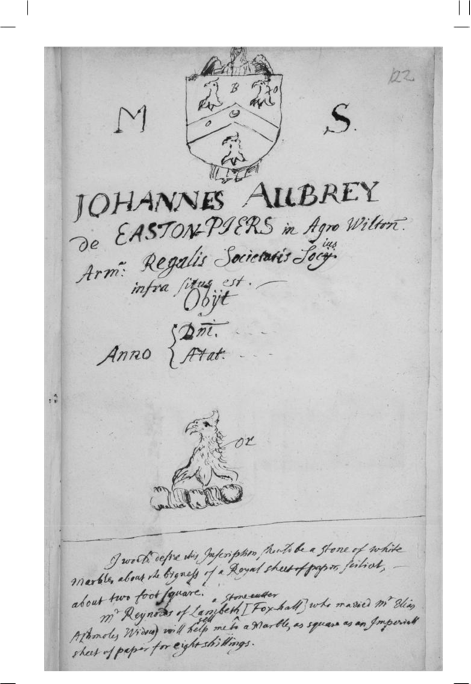 122
B
O
O
M S.
JOHANNES AUBREY
de EASTON-PIERS in Agro Wilton:
Arm: Regalis Societatis Socy
ius
infra situs est.
Obijt
Anno { Dni. . . .
Ætat. . . .
or
I would desire this Inscription, should be a stone of white
Marble, about the bigness of a Royal sheet of paper, scilicet,
about two foot square.
a stone cutter
Mr Reynolds of Lambeth [Foxhall] who maried Mr Elias
Ashmoles Widow will help me to a Marble, as square as an Imperiall
sell
sheet of paper for eight shillings.